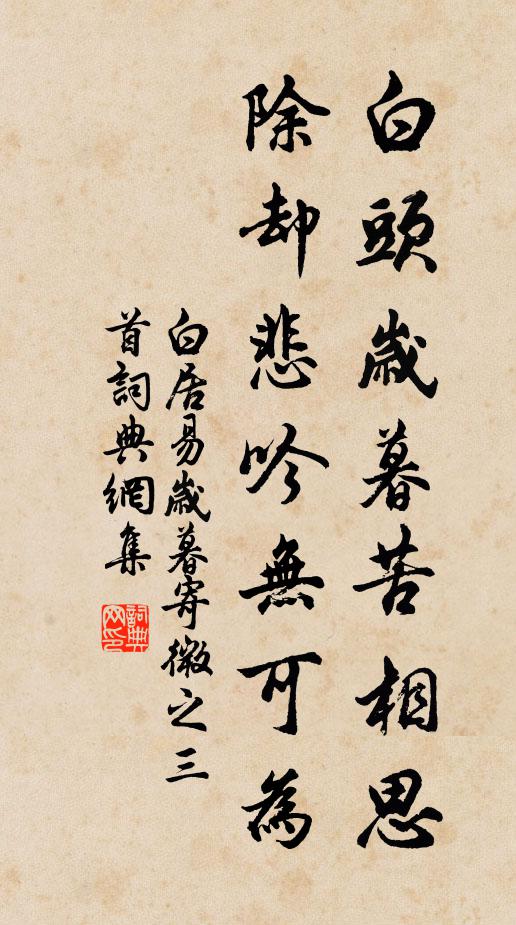 白頭歲暮苦相思
除却悲吟無可為
白居易歲暮寄微之三
首詞典網集
詞典
网印